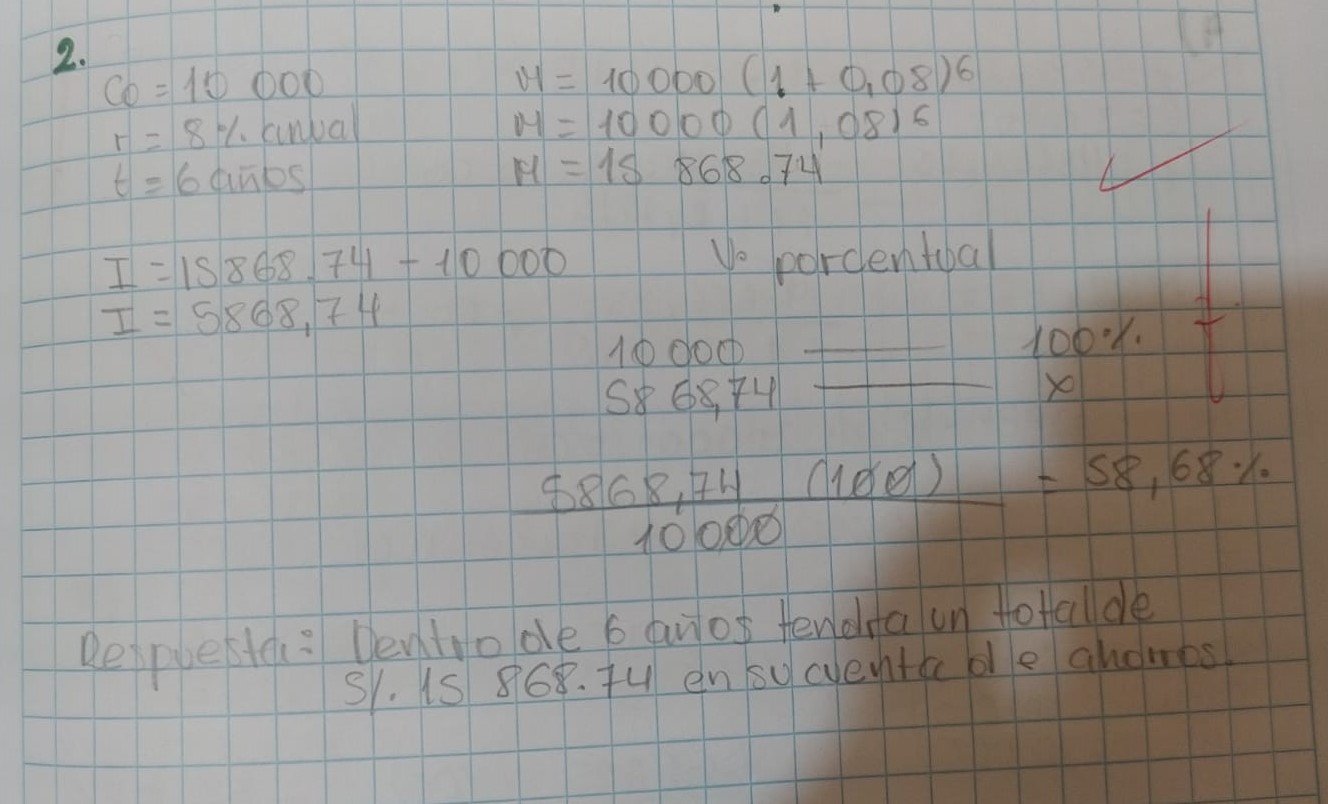 2.
C0 = 10 000
r = 8 % anual
t = 6 años
M = 10 000 (1 + 0,08)6
M = 10 000 (1,08)6
M = 15 868.74
I = 15868.74 - 10 000
I = 5868,74
V. porcentual
10 000 100%
5868,74 x
5868,74 (100) = 58,68%
10 000
Respuesta: Dentro de 6 años tendra un total de
S/. 15 868.74 en su cuenta de ahorros.